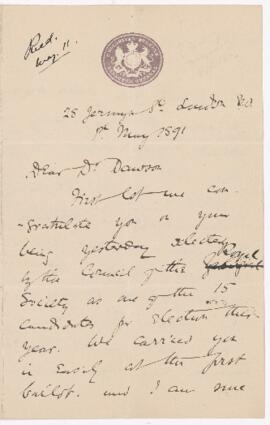 Recd.
May 11.
GEOLOGICAL SURVEY
28 Jermyn St. London SW
1st May 1891
Dear Dr Dawson
First let me con-
-gratulate you on your
being yesterday selected
by the Council of the Royal
Society as one of the 15
candidates for election this
year. We carried you
in easily at the first
ballot. and I am sure